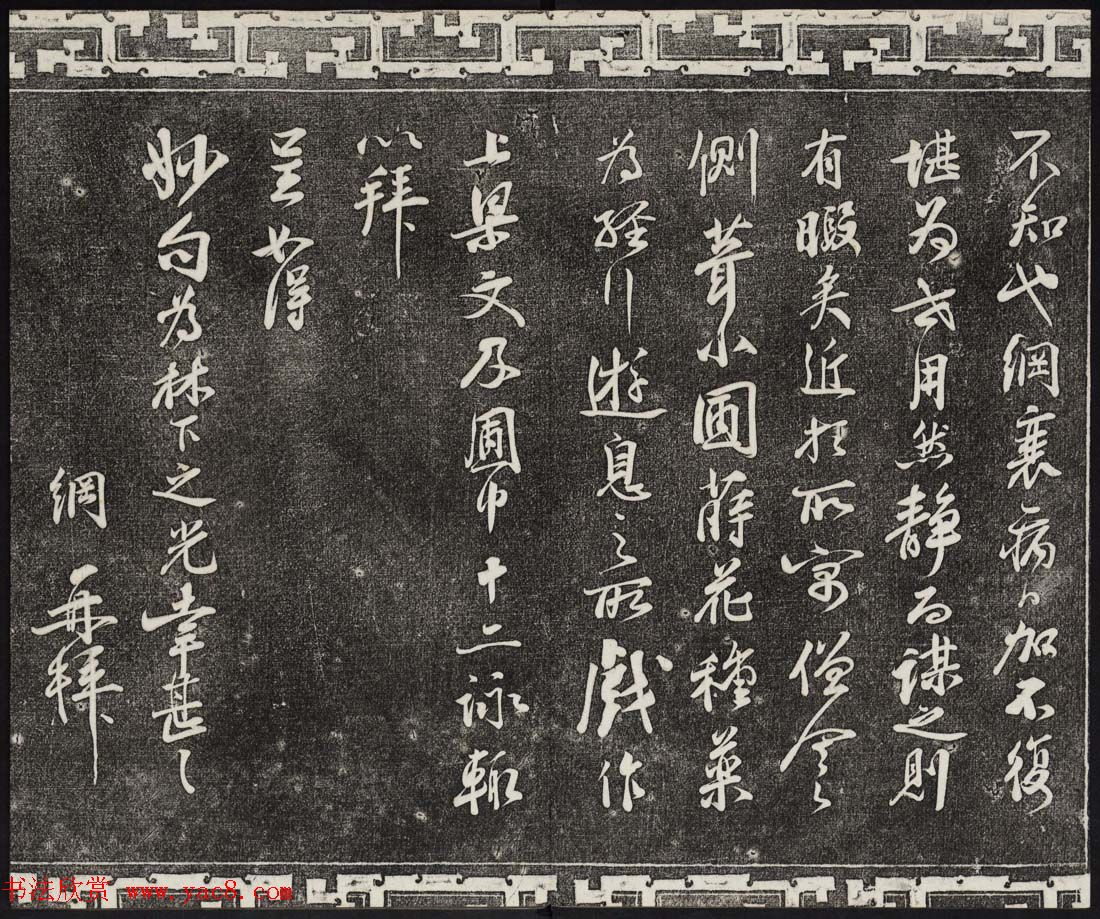 不知代綱衰病日加不復
堪為世用然静而謀之則
有暇矣近於所寓僧舍之
側葺小圃蒔花種藥
為經行遊息之所戲作
上梁文及圃中十二詠輒
以拜
呈如得
妙句為林下之光幸甚々
綱再拜
书法欣赏 www.yac8.com